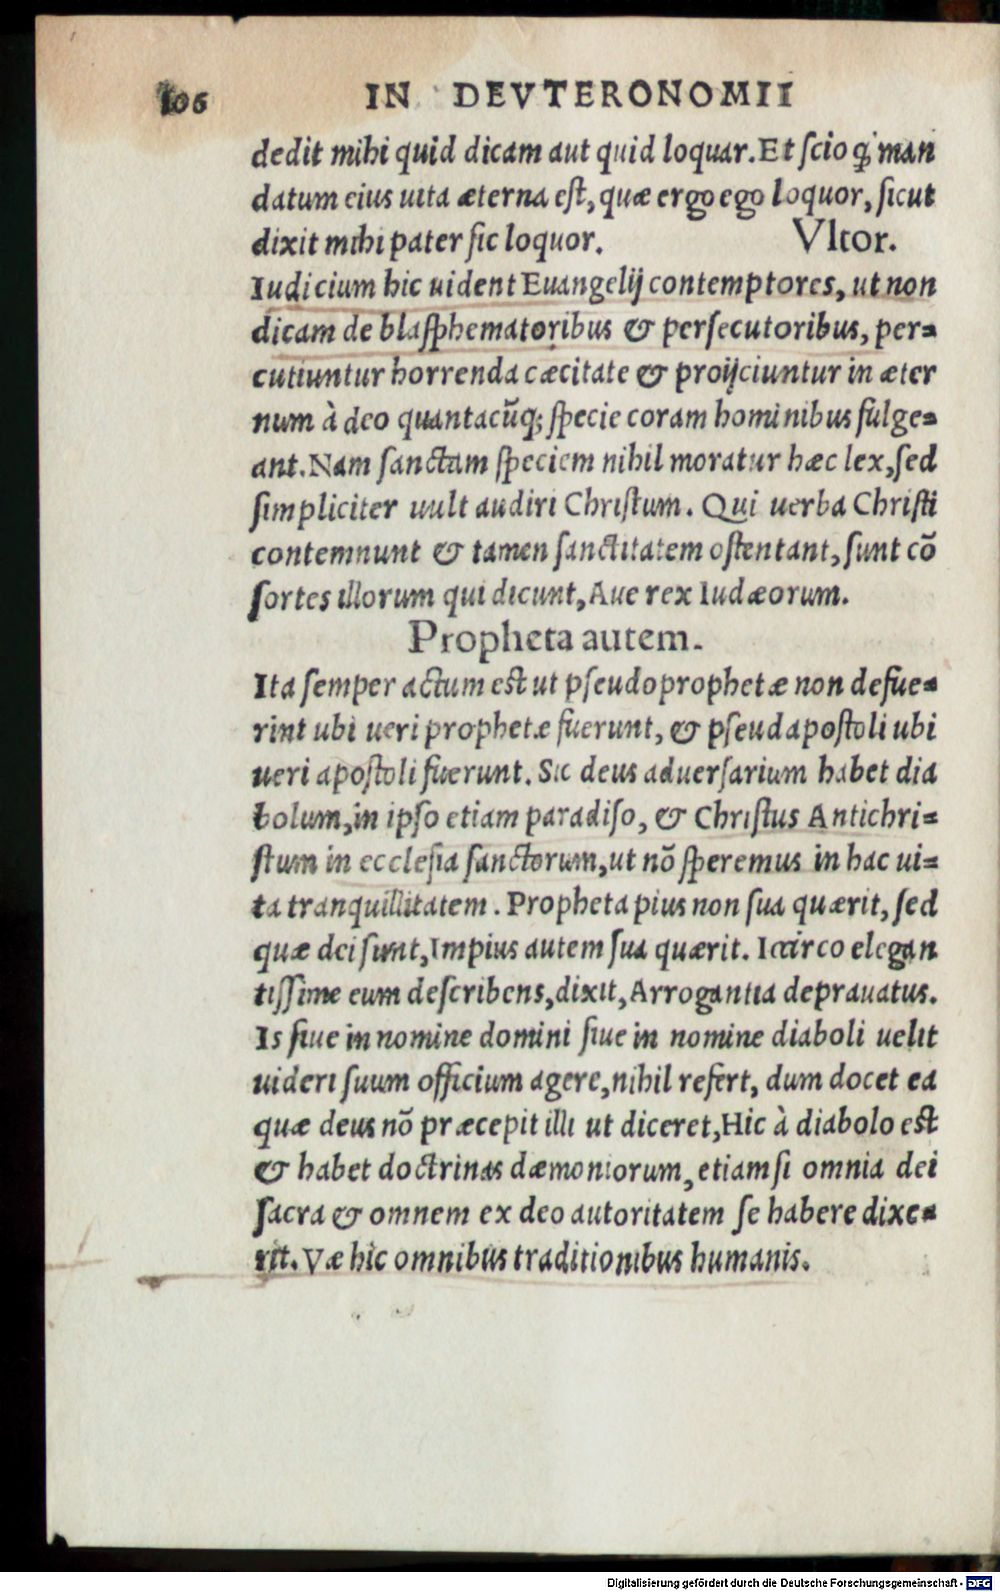 106 IN DEVTERONOMII
dedit mihi quid dicam aut quid loquar. Et ſcio ꝙ man
datum eius uita æterna eſt, quæ ergo ego loquor, ſicut
dixit mihi pater ſic loquor. Vltor.
Iudicium hic uident Euangelij contemptores, ut non
dicam de blaſphematoribus & perſecutoribus, per=
cutiuntur horrenda cæcitate & proijciuntur in æter
num à deo quantacūq; ſpecie coram hominibus fulge=
ant. Nam ſanctam ſpeciem nihil moratur hæc lex, ſed
ſimpliciter uult audiri Chriſtum. Qui uerba Chriſti
contemnunt & tamen ſanctitatem oſtentant, ſunt cō
ſortes illorum qui dicunt, Aue rex Iudæorum.
Propheta autem.
Ita ſemper actum est ut pſeudoprophetæ non defue=
rint ubi ueri prophetæ fuerunt, & pſeudapoſtoli ubi
ueri apoſtoli fuerunt. Sic deus aduerſarium habet dia
bolum, in ipſo etiam paradiſo, & Chriſtus Antichri=
ſtum in eccleſia ſanctorum, ut nō ſperemus in hac ui=
ta tranquillitatem. Propheta pius non ſua quærit, ſed
quæ dei ſunt, Impius autem ſua quærit. Iccirco elegan
tiſſime eum deſcribens, dixit, Arrogantia deprauatus.
Is ſiue in nomine domini ſiue in nomine diaboli uelit
uideri ſuum officium agere, nihil refert, dum docet ea
quæ deus nō præcepit illi ut diceret, Hic à diabolo est
& habet doctrinas dæmoniorum, etiamſi omnia dei
ſacra & omnem ex deo autoritatem ſe habere dixe=
rit. Væ hic omnibus traditionibus humanis.
Digitalisierung gefördert durch die Deutsche Forschungsgemeinschaft - DFG